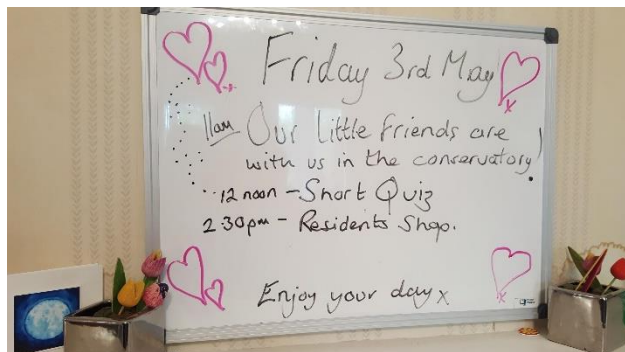 Friday 3rd May
11am Our little friends are
with us in the conservatory!
12 noon - Short Quiz
2.30pm - Residents Shop.
Enjoy your day x